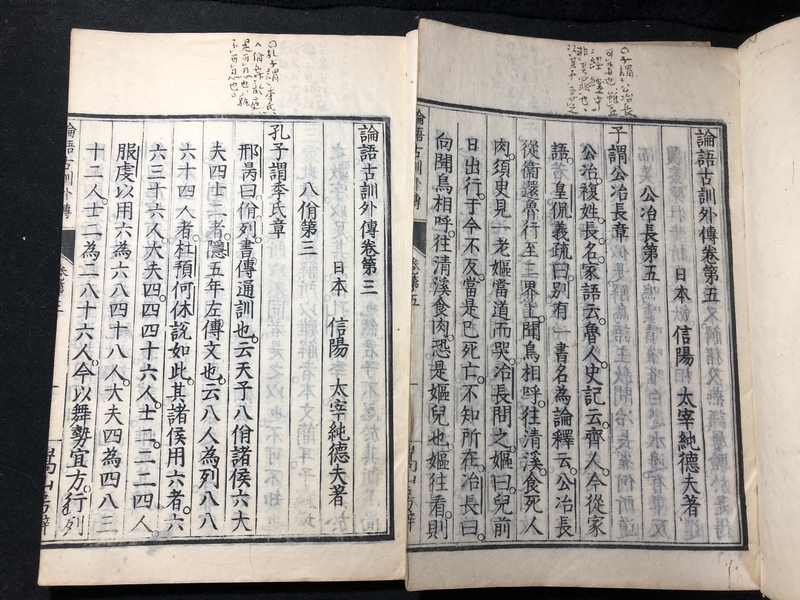 論語古訓外傳卷第五
公冶長第五
日本 信陽 太宰純德夫著
子謂公冶長章
公冶複姓。長名。家語云。魯人。史記云。齊人。今從家
語。皇侃義疏曰。別有一書。名為論釋。云。公冶長
從衞還魯。行至二界上。聞鳥相呼。往清溪。食死人
肉。須臾見一老嫗當道而哭。冶長問之。嫗曰。兒前
日出行。于今不反。當是已死亡。不知所在。冶長曰。
向聞鳥相呼。往清溪食肉。恐是嫗兒也。嫗往看。則
論語古訓外傳
論語古訓外傳卷第三
八佾第三
日本 信陽 太宰純德夫著
孔子謂季氏章
邢昺曰。佾列。書傳通訓也。云天子八佾諸侯六大
夫四士二者。隱五年左傳文也。云八人為列八八
六十四人者。杜預何休說如此。其諸侯用六者。六
六三十六人。大夫四。四四十六人。士二。二二四人。
服虔以用六為六八四十八人。大夫四為四八三
十二人。士二為二八十六人。今以舞勢宜方。行列
論語古訓外傳